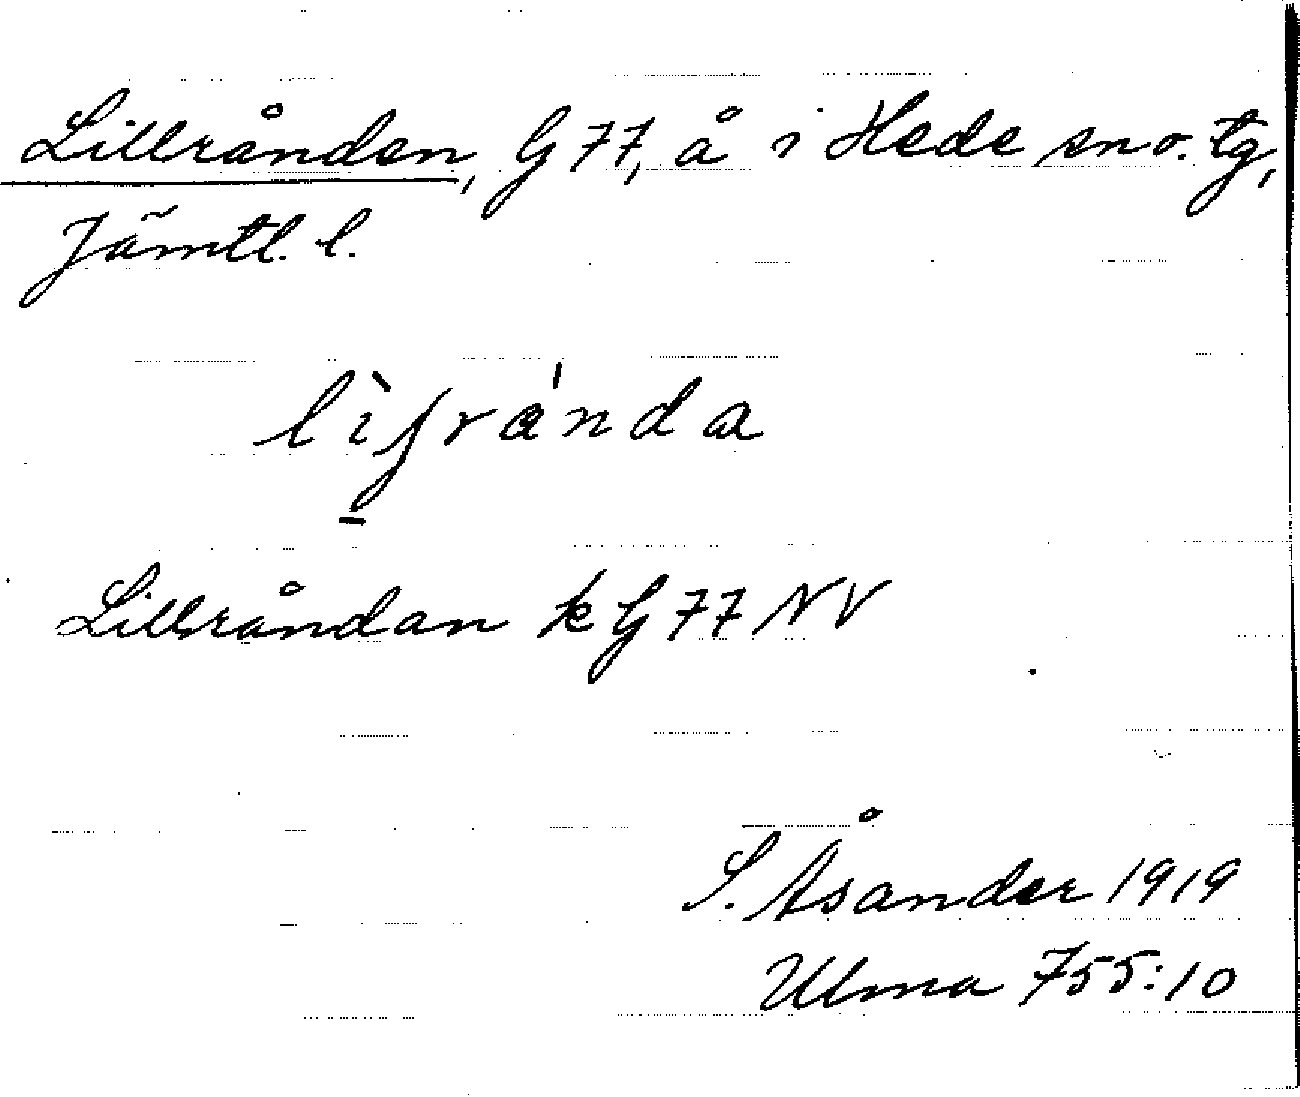 Lillrånden, G 77, å i Hede sn o. tg,
Jämtl. l.
Lillråndan k G 77 NV
S. Åsander 1919
Ulma 755:10